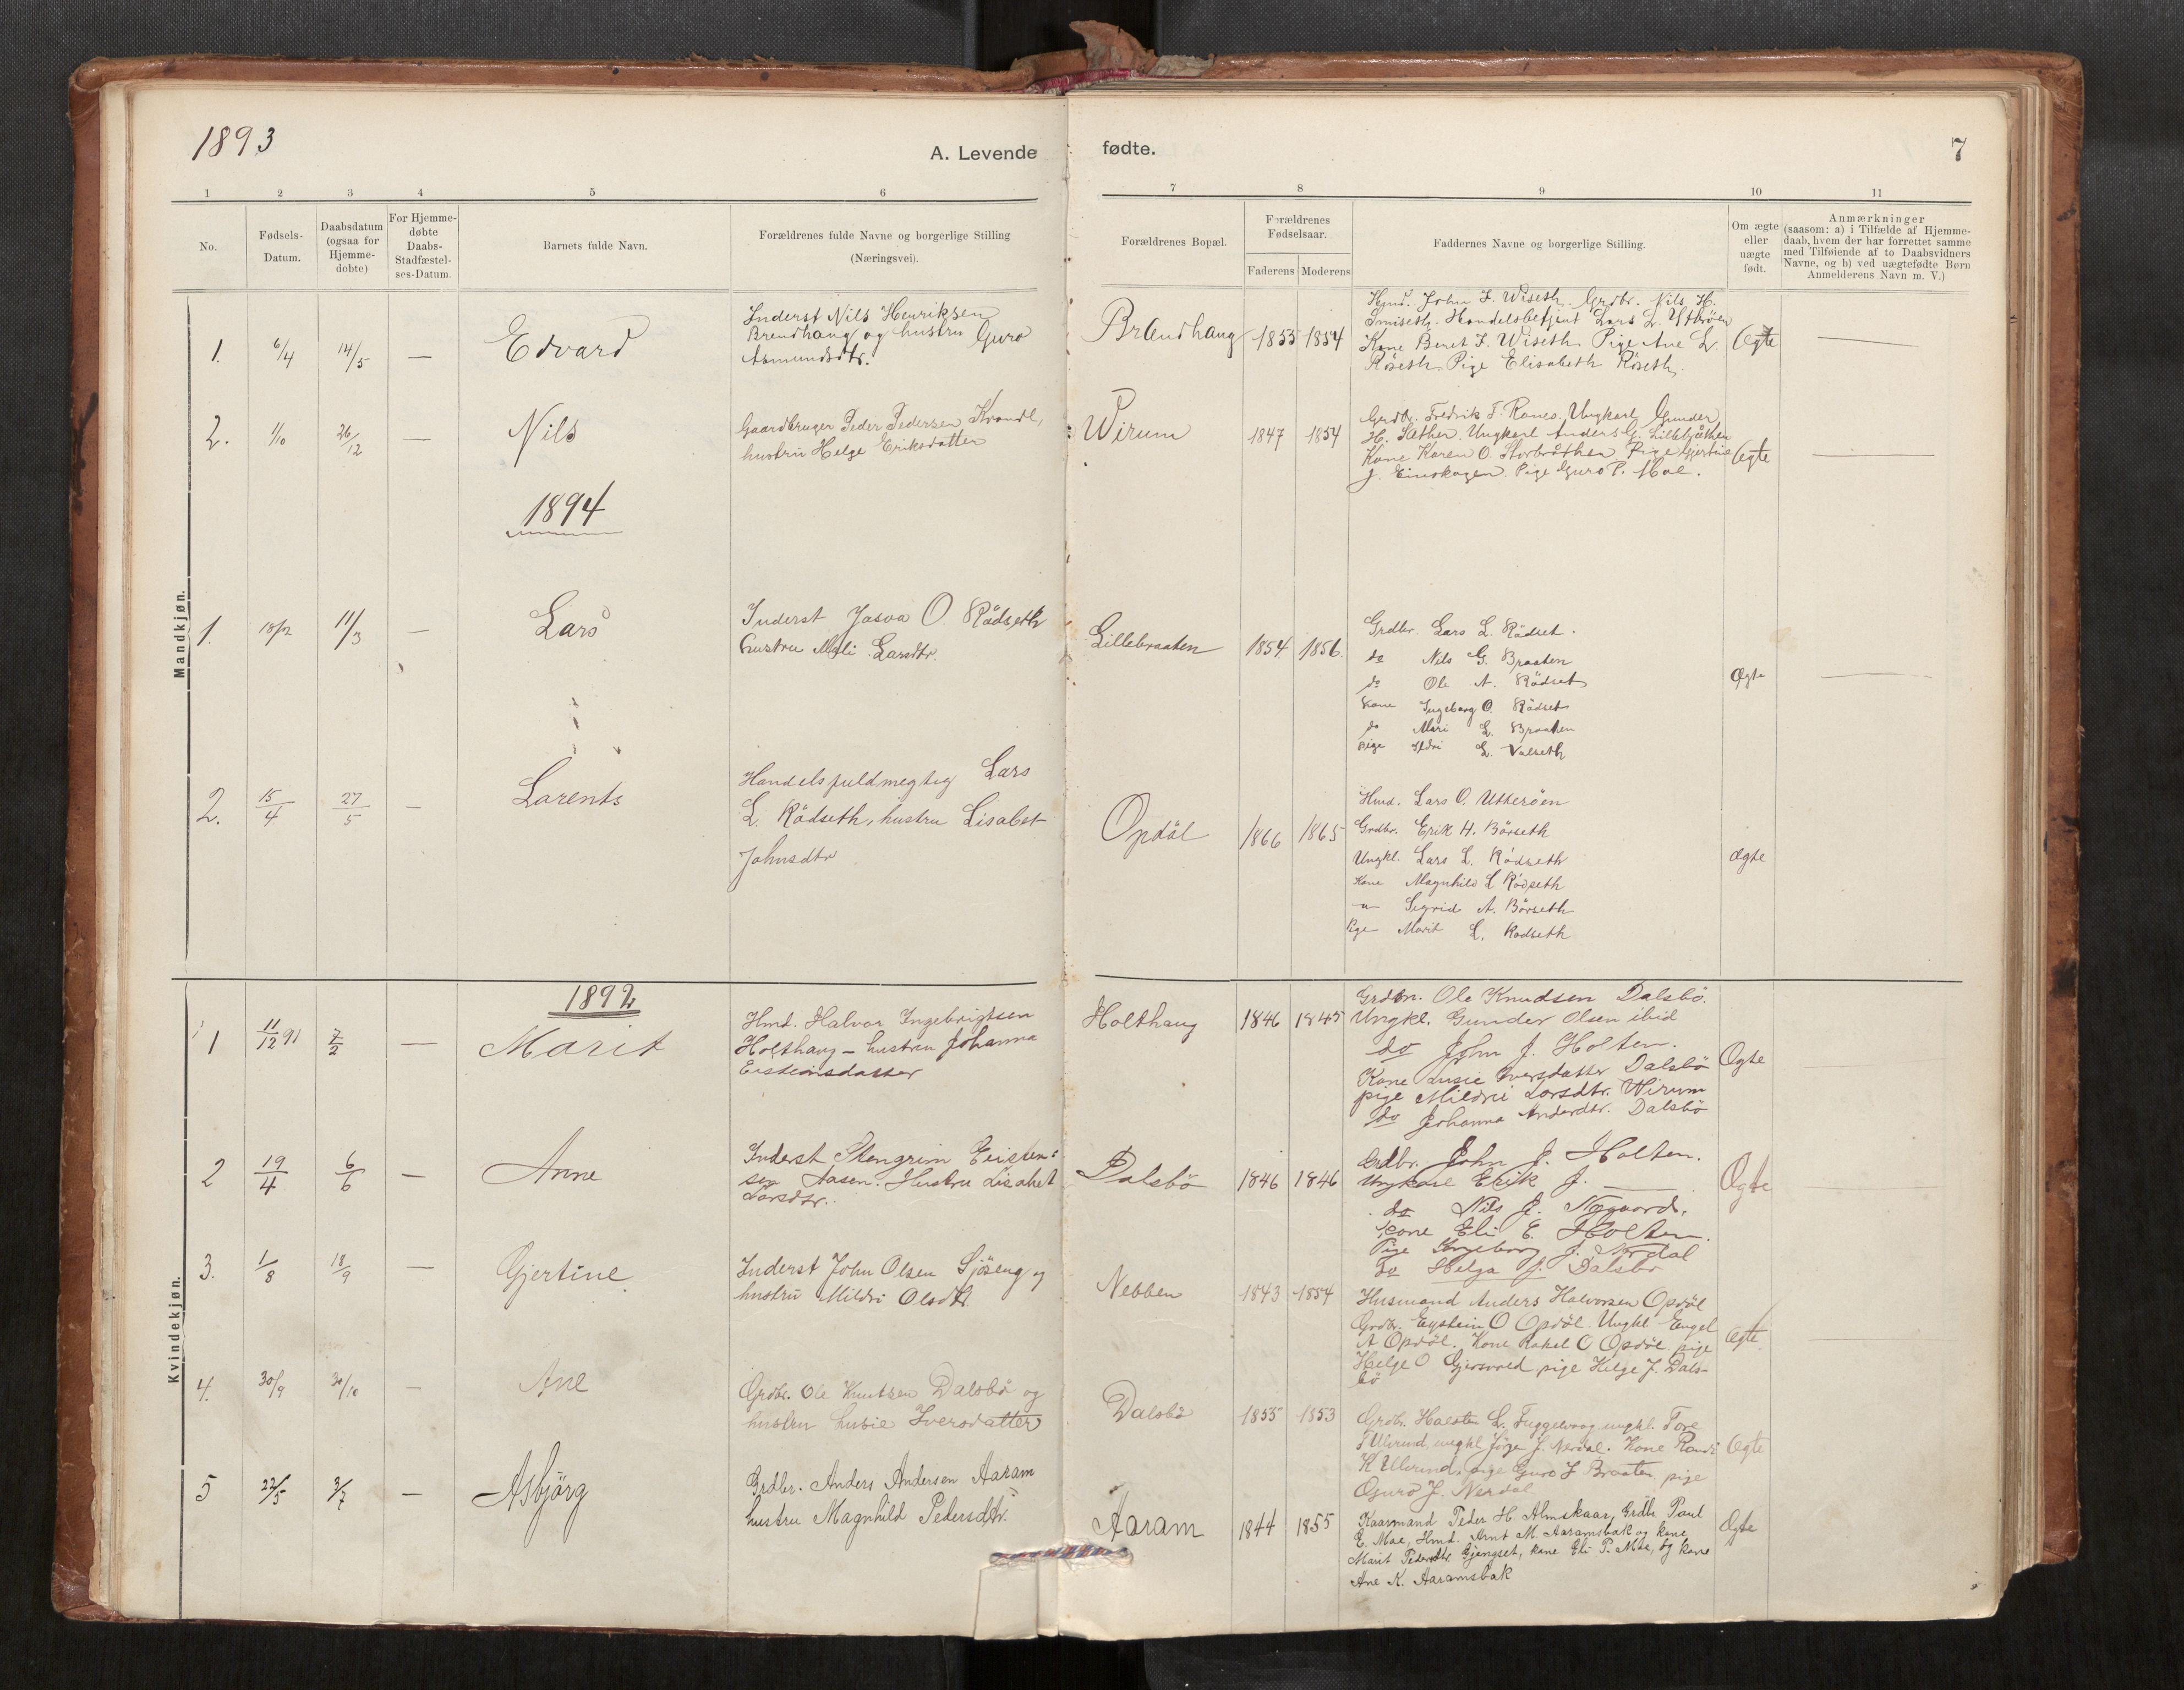 1893
A. Levende fødte.
7
1 2 3 4 5 6 7 8 9 10 11
No.
Fødsels-
Datum.
Daabsdatum
(ogsaa for
Hjemme-
dobte)
For Hjemme-
døbte
Daabs-
Stadfæstel-
ses-Datum.
Barnets fulde Navn.
Forældrenes fulde Navne og borgerlige Stilling
(Næringsvei).
Forældrenes Bopæl.
Forældrenes
Fødselsaar.
Faderens Moderens
Faddernes Navne og borgerlige Stilling.
Om ægte
eller
uægte
født.
Anmærkninger
(saasom: a) i Tilfælde af Hjemme-
daab, hvem der har forrettet samme
med Tilføiende af to Daabsvidners
Navne, og b) ved uægtefødte Børn
Anmelderens Navn m. V.)
Mandkjøn.
1. 6/4 14/5 — Edvard
Inderst Nils Henriksen
Brendhaug og hustru Guro
Asmundsdtr.
Brændhaug 1855 1854
Hmd. John J. Wiseth. Grdbr. Nils H.
Smiseth. Handelsbetjent Lars L. Ytterøen
Kone Beret J. Wiseth Pige Ane L.
Röseth Pige Elisabeth Röseth
Ægte —
2. 1/10 26/12 — Nils
Gaardbruger Peder Pedersen
hustru Helge Eriksdatter
Wirum 1847 1854
Grdbr. Fredrik F. Ranes, Ungkarl Gunder
H. Sæther. Ungkarl Anders G.
Kone Karen O. Pige Gjertine
J. Einskagen. Pige Guro P. Moe.
Ægte —
1894
1. 18/2 11/3 — Lars
Inderst O. Rödseth
hustru Mali Larsdtr.
Lillebraaten 1854 1856.
Grdbr. Lars L. Rödset.
do Nils G. Braaten
do Ole A. Rödset
Kone Ingeborg O. Rödset
do Mari L. Braaten
Pige Ildri L. Valseth
Ægte —
2. 15/4 27/5 — Larents
Handelsfuldmegtig Lars
L. Rödseth, hustru Lisabet
Johnsdtr
Opdöl 1866 1865
Hmd. Lars O. Utteröen
Grdbr. Erik H. Börseth
Ungkl. Lars L. Rödseth
Kone Magnhild L Rödseth
" Sigrid A. Börseth
Pige Marit L. Rodseth
ægte
Kvindekjøn.
1892
1 11/12 91 7/2 — Marit
Hmd. Halvor Ingebrigtsen
Holthaug – hustru Johanna
Eisteinsdatter
Holthaug 1846 1845
Grdbr. Ole Knudsen Dalsbö.
Ungkl. Gunder Olsen ibid
do John J. Holten.
Kone Lusie Iversdatter Dalsbö
pige Mildri Larsdtr. Wirum
do Johanna Andersdtr. Dalsbö
Ægte
2 19/4 6/6 — Anne
Inderst Stengrim Eisten-
sen Aasen. Hustru Lisabet
Larsdtr.
Dalsbö 1846 1846
Grdbr. John J. Holten.
Ungkarl Erik J. —
do Nils J. Nögaard.
Kone Eli E. Holten.
Pige Ingeborg J. Nerdal
do Helga J. Dalsbö
Ægte
3. 1/8 18/9 — Gjertine
Inderst John Olsen Sjöseng og
hustru Mildri Olsdtr.
Nebben 1843 1854
Husmand Anders Halvorsen Opdöl
Grdbr. Eystein O Opdöl. Ungkl. Engel
A Opdöl. Kone Rakel O Opdöl, pige
Helge O Gjersvold, pige Helge J. Dals-
bö
Ægte
4. 30/9 30/10 — Ane
Grdbr. Ole Knutsen Dalsbö og
hustru Lusie Iversdatter
Dalsbö 1855 1853
Grdbr. Halsten L. Fuggelvaag, ungkl. Tore
T Ulvund, ungkl Jörgen J. Nerdal. Kone Randi
K Ulvund, pige Guro J Braaten, pige
Guro J. Nerdal
Ægte
5 22/5 3/7 — Asbjörg
Grdbr. Anders Andersen Aaram
hustru Magnhild Pedersdtr.
Aaram 1844 1855
Kaarmand Peder H. Almskaar, Grdbr Paul
E. Moe, Hmd. Arnt M. Aaramsbak og kone
Marit Pedersdtr. Gjengset, kone Eli P. Moe, og kone
Ane K. Aaramsbak
Ægte